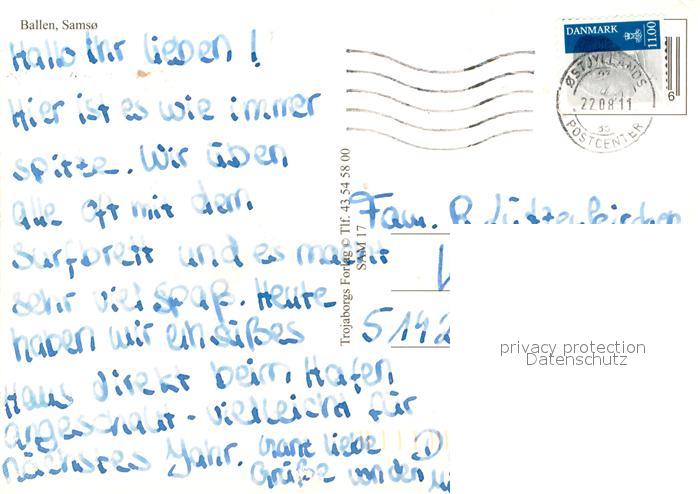 Ballen, Samsø
Hallo ihr lieben!
Hier ist es wie immer
spitze. Wir üben
alle oft mit dem
Surfbrett und es macht
sehr viel spaß. Heute
haben wir ein süßes
Haus direkt beim Hafen
angeschaut - vielleicht für
nächstes Jahr. Ganz liebe
Grüße von den
Trojaborgs Forlag © Tlf. 43 54 58 00
SAM 17
DANMARK
11.00
ØSTJYLLANDS
22.08.11
POSTCENTER
6
Fam. R. Lützenkirchen
5142
privacy protection
Datenschutz